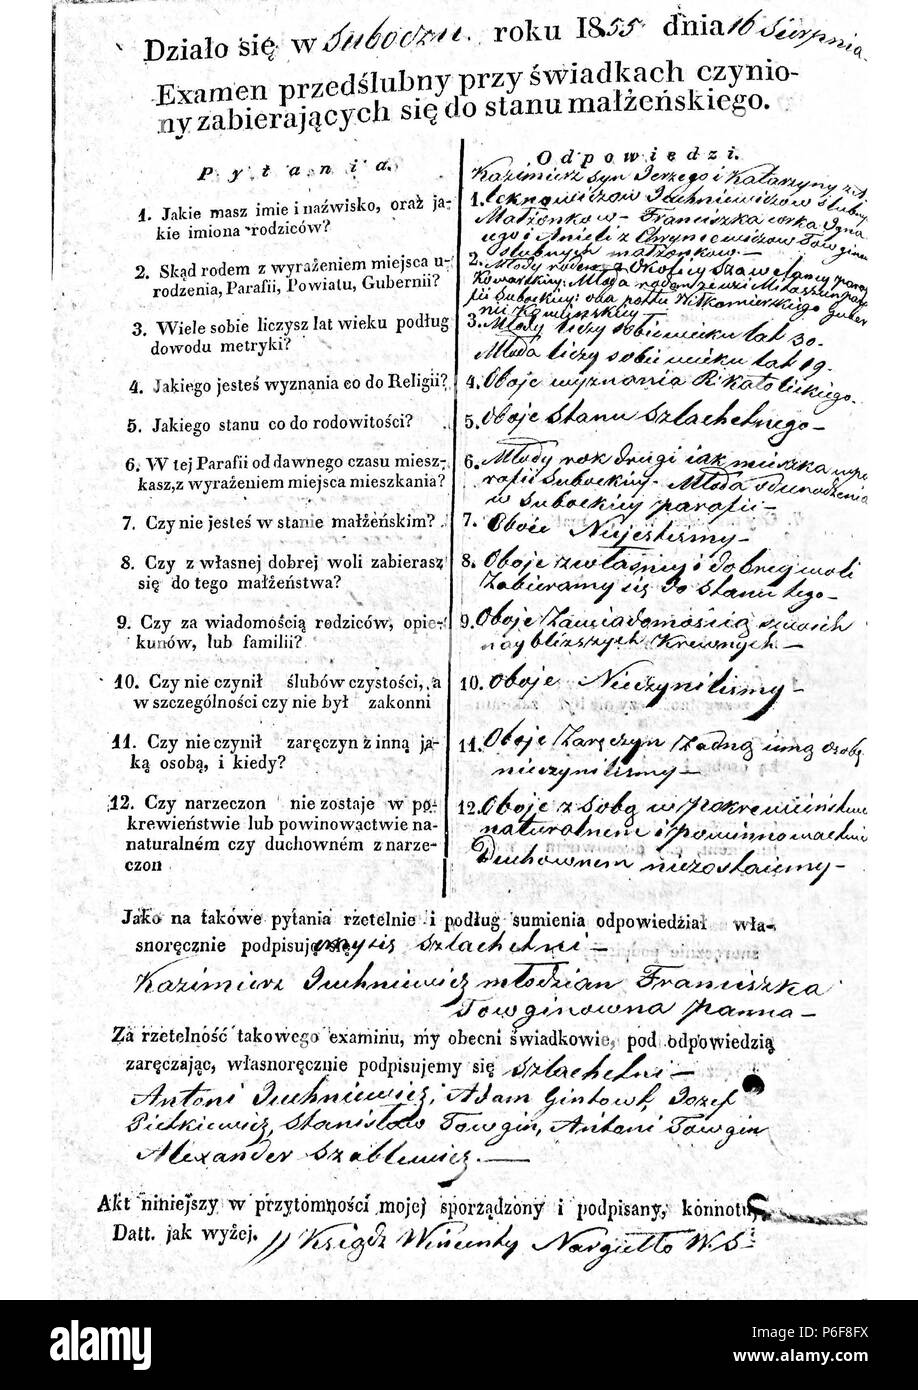 Działo się w Suboczu. roku 1855 dnia 16 Sierpnia
Examen przedślubny przy świadkach czynio-
ny zabierających się do stanu małżeńskiego.
Pytania.
1. Jakie masz imie i naźwisko, oraż ja-
kie imiona rodziców?
2. Skąd rodem z wyrażeniem miejsca u-
rodzenia, Parafii, Powiatu, Gubernii?
3. Wiele sobie liczysz lat wieku podług
dowodu metryki?
4. Jakiego jesteś wyznania co do Religii?
5. Jakiego stanu co do rodowitości?
6. W tej Parafii od dawnego czasu miesz-
kasz, z wyrażeniem miejsca mieszkania?
7. Czy nie jesteś w stanie małżeńskim?
8. Czy z własnej dobrej woli zabierasz
się do tego małżeństwa?
9. Czy za wiadomością rodziców, opie-
kunów, lub familii?
10. Czy nie czynił ślubów czystości, a
w szczególności czy nie był zakonni
11. Czy nie czynił zaręczyn z inną ja-
ką osobą, i kiedy?
12. Czy narzeczon nie zostaje w po-
krewieństwie lub powinowactwie na-
naturalném czy duchowném z narze-
czon
Odpowiedzi.
Kazimierz syn Jerzego i Katarzyny z
1. Juchniewiczow slubn
Małżonkow - Franciszka corka Igna
cego i Anieli z Chryniewiczow Towginu
Slubnych małżonkow. -
2. Młody rodem z Okolicy Szawelańcy paraf
Młoda rodem ze wsi Mitaszun par
fii Subockiej: oba pottu Wiłkomierskiego Guber
nii Kowieńskiej -
3. Młody liczy sobie wieku lat 30.
Młoda liczy sobie wieku lat 19.
4. Oboje wyznania R. Katolickiego.
5. Oboje Stanu Szlachetnego -
6. Młody rok drugi iak mieszka w pa
rafii Subockiey - Młoda od urodzenia
w Subockiey parafii -
7. Oboie Niejestesmy -
8. Oboje z własney i dobrey woli
Zabieramy się do Stanu tego -
9. Oboje Za wiadomością swoich
naybliższych Krewnych -
10. Oboje Nieczyniliśmy -
11. Oboje Zaręczyn Zadną inną osobą
nieczyniliśmy -
12. Oboje z Sobą w pokrewieństwie
naturalnem i powinnowactwie
Duchownem niezostaiemy -
Jako na takowe pytania rzetelnie i podług sumienia odpowiedział wła-
snoręcznie podpisujemy się Szlachetni -
Kazimierz Juchniewicz młodzian Franciszka
Towginowna panna -
Za rzetelność takowego examinu, my obecni świadkowie, pod odpowiedzią
zaręczając, własnoręcznie podpisujemy się Szlachetni -
Antoni Juchniewicz, Adam Gintowt, Jozef
Pietkiewicz, Stanisław Towgin, Antoni Towgin
Alexander Szablewicz. -
Akt niniejszy w przytomności mojej sporządzony i podpisany, konnotuję
Datt. jak wyżej. // Ksiądz Wincenty Nargiełło W. S
alamy
Image ID: P6F8FX
www.alamy.com